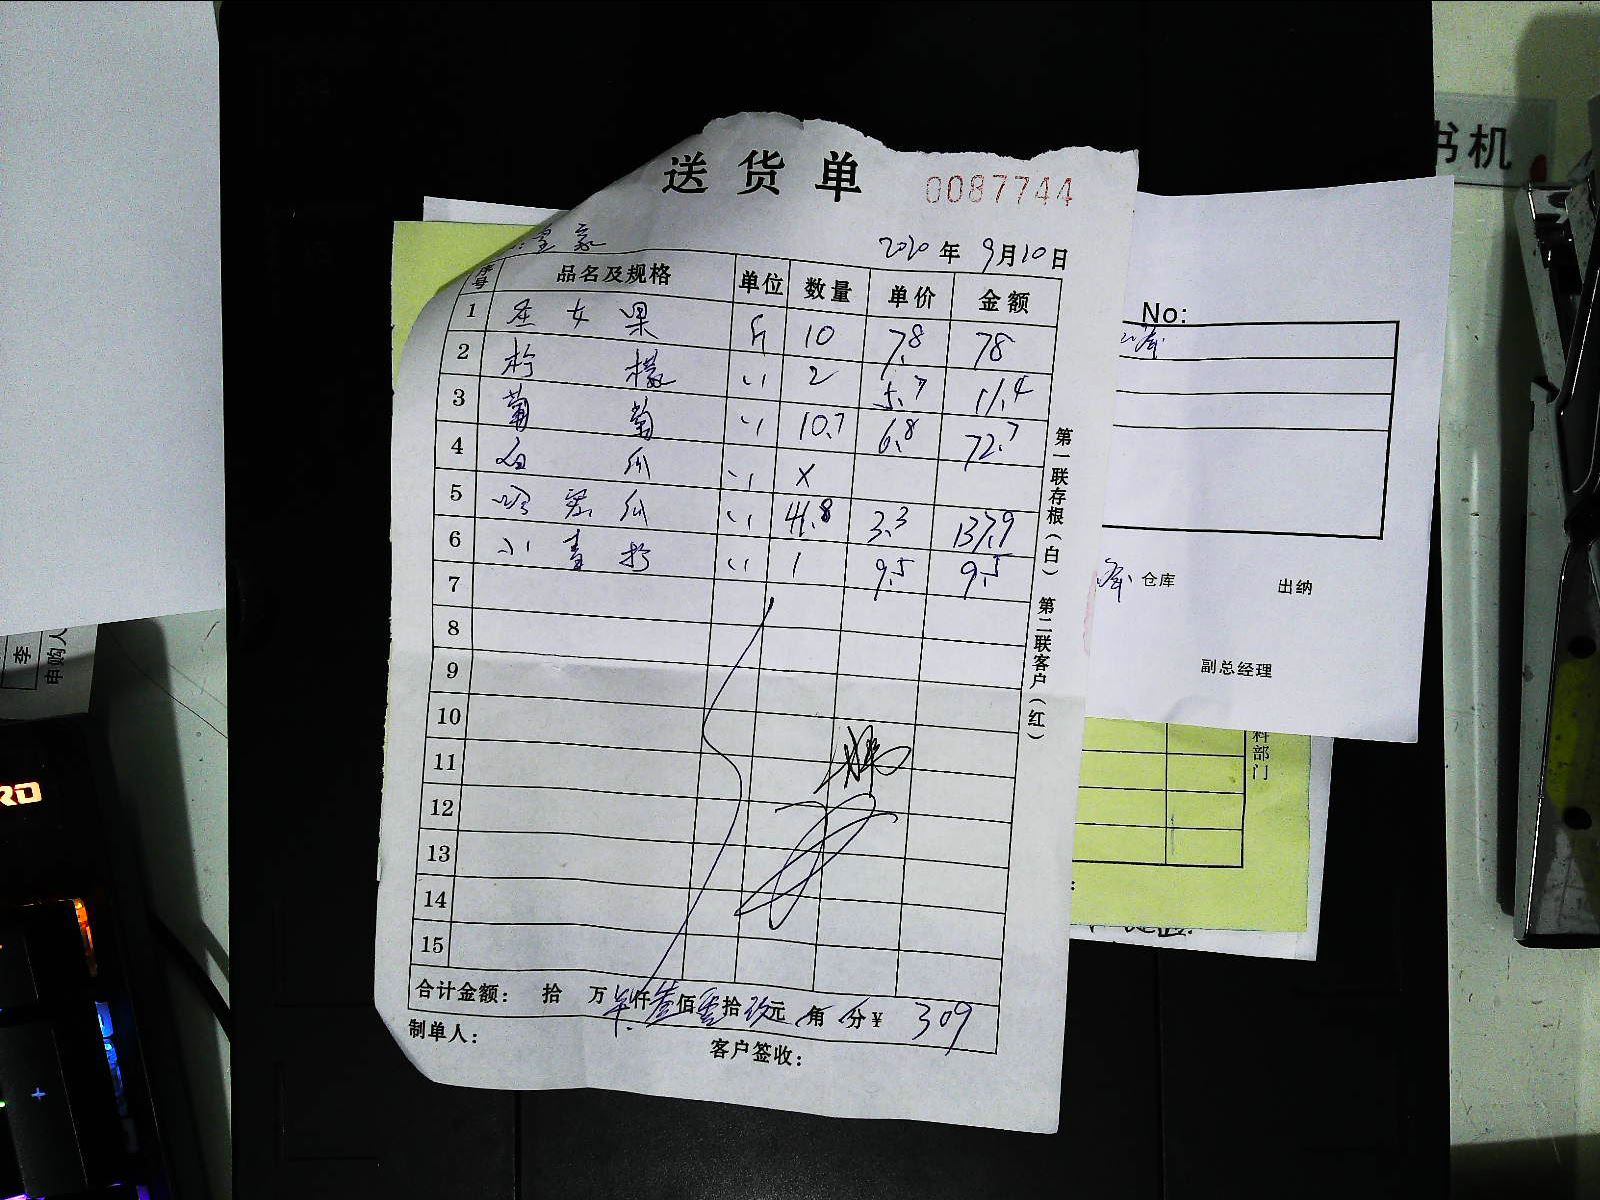 送货单 0087744
2020年9月10日
序号 品名及规格 单位 数量 单价 金额
1 圣女果 斤 10 7.8 78
2 柠檬 〃 2 5.7 11.4
3 葡萄 〃 10.7 6.8 72.7
4 白瓜 〃 X
5 哈密瓜 〃 41.8 3.3 137.9
6 小青柠 〃 1 9.5 9.5
7
8
9
10
11
12
13
14
15
合计金额: 拾 万 仟叁佰零拾玖元 角 分¥ 309
制单人:
客户签收:
第一联存根(白) 第二联客户(红)
No:
仓库 出纳
副总经理
料部门
书机
李
申购人
RD